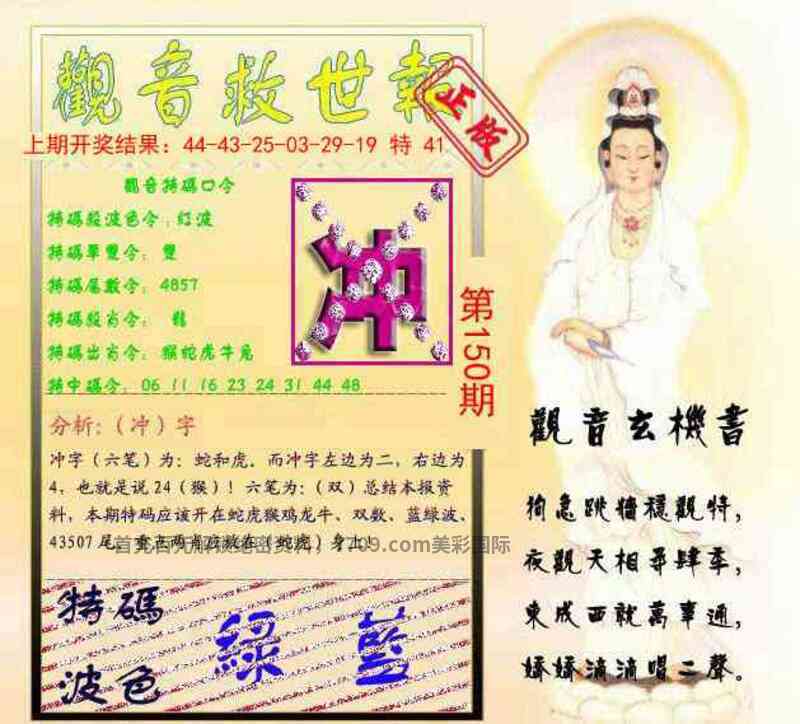 觀音救世報
正版
上期开奖结果：44-43-25-03-29-19 特 41
觀音特碼口令
特碼殺波色令：红波
特碼單雙令：雙
特碼尾數令：4857
特碼殺肖令：
特碼出肖令：猴蛇虎牛兔
特中碼令：06 11 16 23 24 31 44 48
冲
第150期
分析：（冲）字
冲字（六笔）为：蛇和虎．而冲字左边为二，右边为
4，也就是说 24（猴）！六笔为：（双）总结本报资
料，本期特码应该开在蛇虎猴鸡龙牛、双数、蓝绿波、
43507 尾，重点两肖应放在（蛇虎）身上！
09.com美彩国际
特碼
波色
綠 藍
觀音玄機書
狗急跳牆穩觀特，
夜觀天相尋肆季，
東成西就萬事通，
嬌嬌滴滴唱二聲。